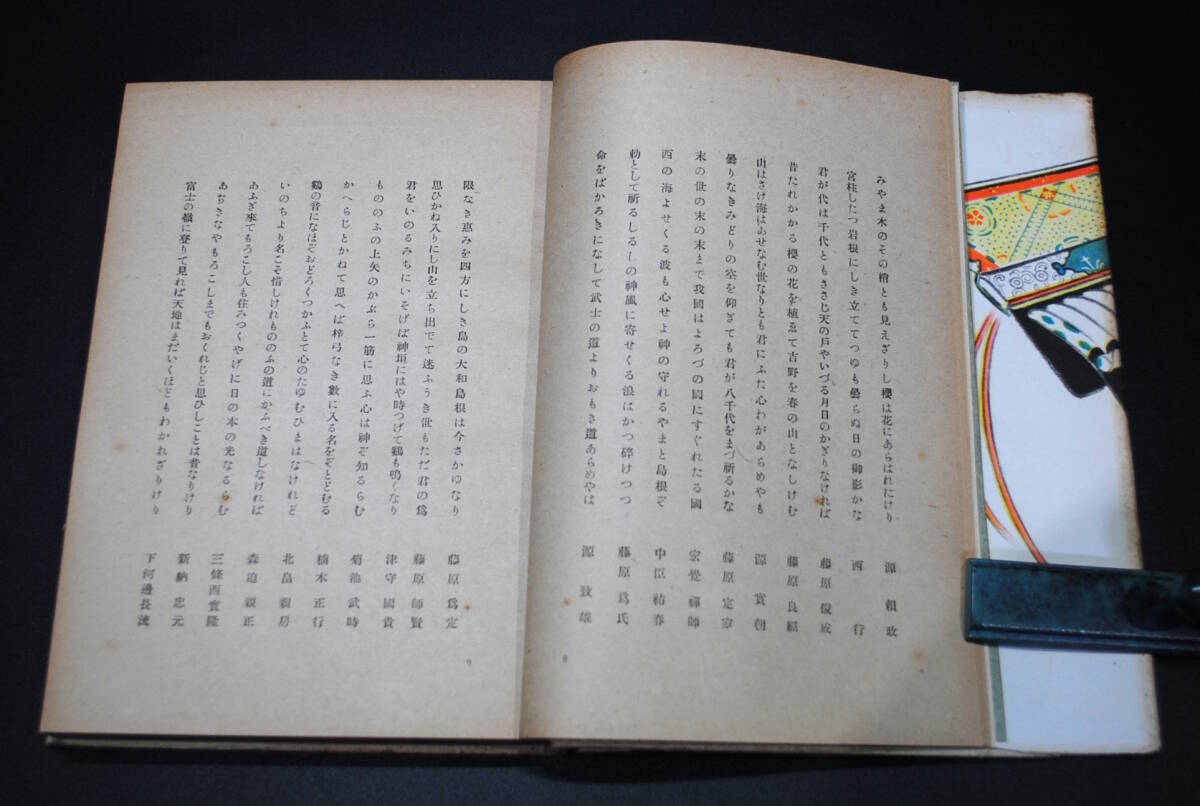 みやま木のその梢とも見えざりし櫻は花にあらはれにけり
源頼政
宮柱したつ岩根にしき立ててつゆも曇らぬ日の御影かな
西行
君が代は千代ともささじ天の戸やいづる月日のかぎりなければ
藤原俊成
昔たれかかる櫻の花を植ゑて吉野を春の山となしけむ
藤原良經
山はさけ海はあせなむ世なりとも君にふた心わがあらめやも
源實朝
曇りなきみどりの空を仰ぎても君が八千代をまづ祈るかな
藤原定家
末の世の末の末まで我國はよろづの國にすぐれたる國
宏覺禪師
西の海よせくる波も心せよ神の守れるやまと島根ぞ
中臣祐春
勅として祈るしるしの神風に寄せくる浪はかつ碎けつつ
藤原爲氏
命をばかろきになして武士の道よりおもき道あらめやは
源致雄
8
限なき惠みを四方にしき島の大和島根は今さかゆなり
藤原爲定
思ひかね入りにし山を立ち出でて迷ふうき世もただ君の爲
藤原師賢
君をいのるみちにいそげば神垣にはや時つげて鷄も鳴くなり
津守國貴
もののふの上矢のかぶら一筋に思ふ心は神ぞ知るらむ
菊池武時
かへらじとかねて思へば梓弓なき數に入る名をぞとどむる
楠木正行
鷄の音になほぞおどろくつかふとて心のたゆむひまはなけれど
北畠親房
いのちより名こそ惜しけれもののふの道にかふべき道しなければ
森迫親正
あふぎ來てもろこし人も住みつくやげに日の本の光なるらむ
三條西實隆
あぢきなやもろこしまでもおくれじと思ひしことは昔なりけり
新納忠元
富士の嶺に登りて見れば天地はまだいくほどもわかれざりけり
下河邊長流
9